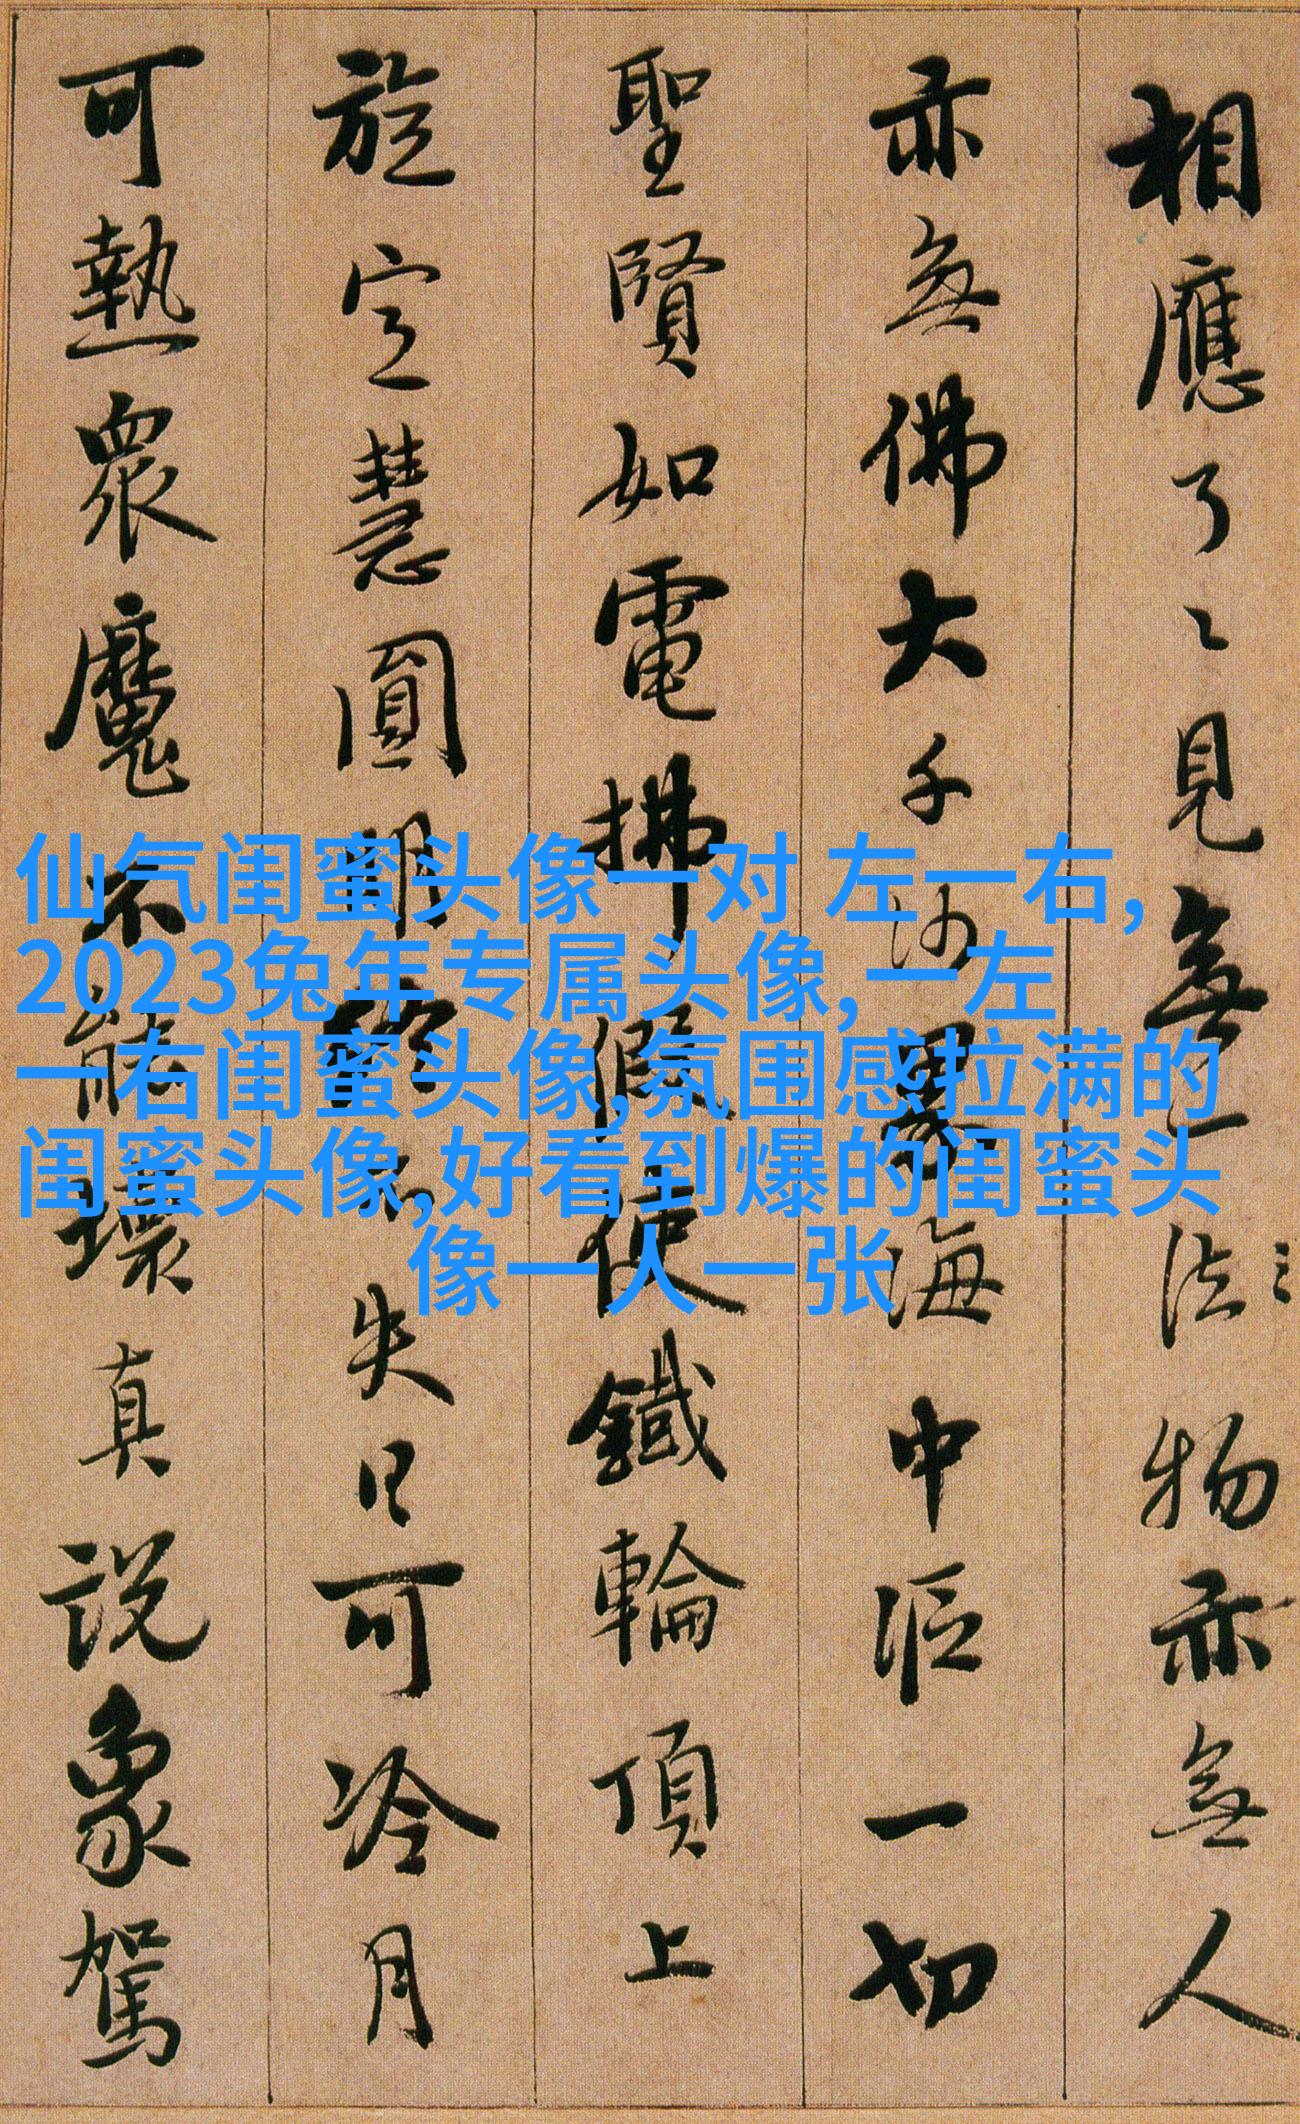 相應了〻見無一法物亦無人
亦無佛大千沙界海中漚一切
聖賢如電拂假使鐵輪頂上
旋定慧圓明終不失日可冷月
可熱眾魔不能壞真說象駕
仙气闺蜜头像一对 左一右,
2023兔年专属头像,一左
一右闺蜜头像,氛围感拉满的
闺蜜头像,好看到爆的闺蜜头
像一人一张